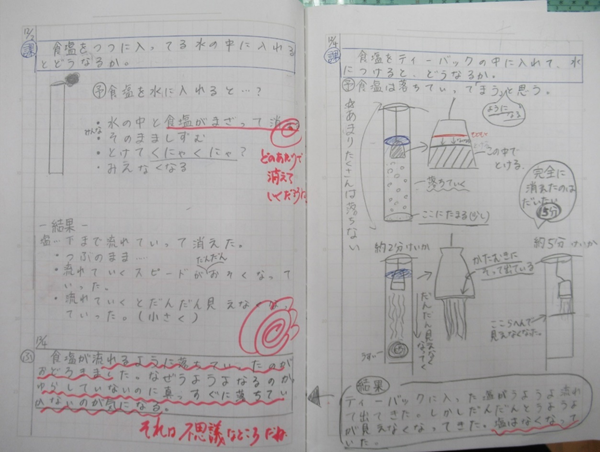 課
食塩をつつに入ってる水の中に入れる
とどうなるか。
予 食塩を水に入れると…?
・水の中と食塩がまざって消
・そのまましずむ
・とけてくにゃくにゃ?
・みえなくなる
どのあたりで
消えて
いくだろうか
-結果-
塩…下まで流れていって消えた。
・つぶのまま…
だんだん
・流れていくスピードがおそくなって
いった。
・流れていくとだんだん見えな
ていった。(小さく)
食塩が流れるように落ちていったのが
おどろきました。なぜうようよなるのか
ゆらしていないのに真っすぐに落ちてい
かないのが気になる。
それは不思議なところだね
課
食塩をティーバックの中に入れて、水
につけると、どうなるか。
予 食塩は落ちていってまうと思う。
ようになる
あまりたくさんは落ちない
この中で
とける
落ちていく
ここにたまる(少し)
完全に
消えたのは
だいたい
5分
約2分けいか
かたむきに
そって出ている
だんだん見えなくなっていく
約5分けいか
ここらへんで
見えなくなった。
結果
ティーバックに入った塩がうようよ流れ
て出てきた。しかしだんだんとうようよ
が見えなくなってきた。塩はなくなって
いた。